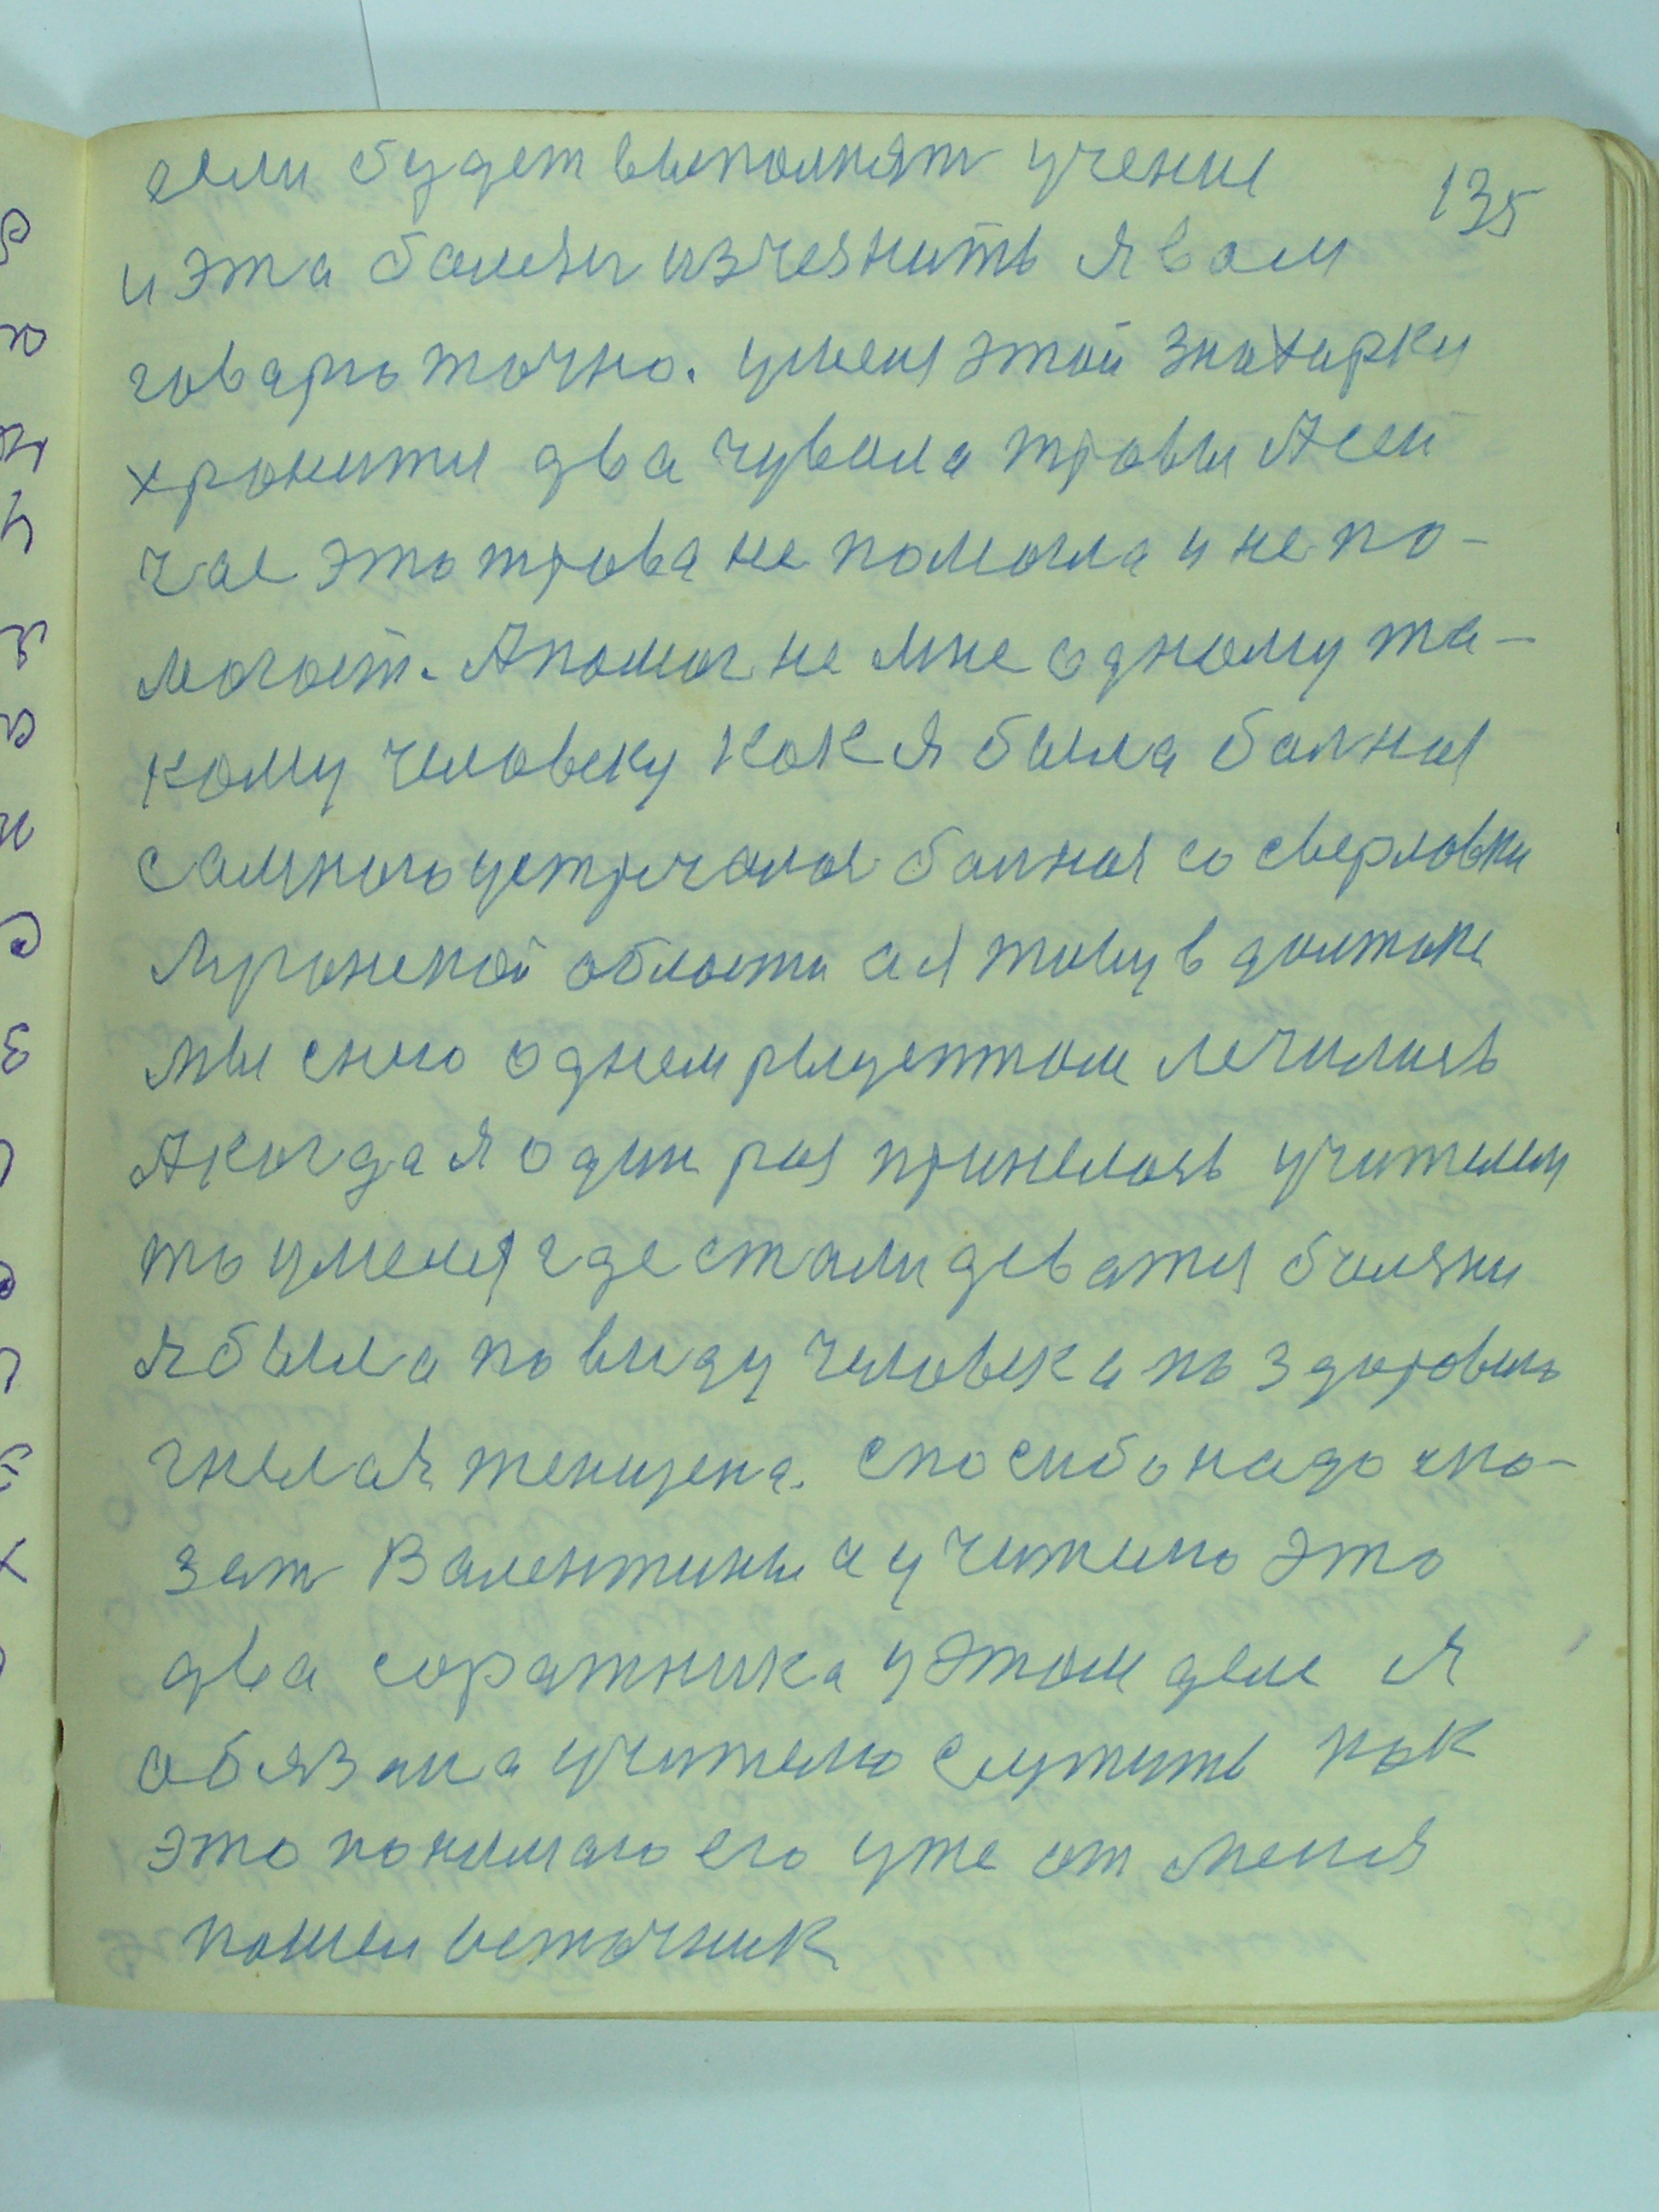 135
если будет выполнят учения
и эта балезн изчезнить я вам
говарю точно. уменя этой знахарки
хранитя два чувала травы Ясей
час это трова не помогла и не по-
могоет. А помог не мне одному та-
кому человеку как я была балная
самною устричалас балная со сверловки
луганской области а я живу в должике
мы сного однем рецептом лечились
А когда я один раз принелась учителем
то уменя где стали деватся балезни
я была по виду человек а по здоровью
гнелая женщена. спасибо надо ска-
зат Валентины а учителю это
два соратника у этом деле я
обязана учителю служить как
это понимаю его уже от меня
пошел источник